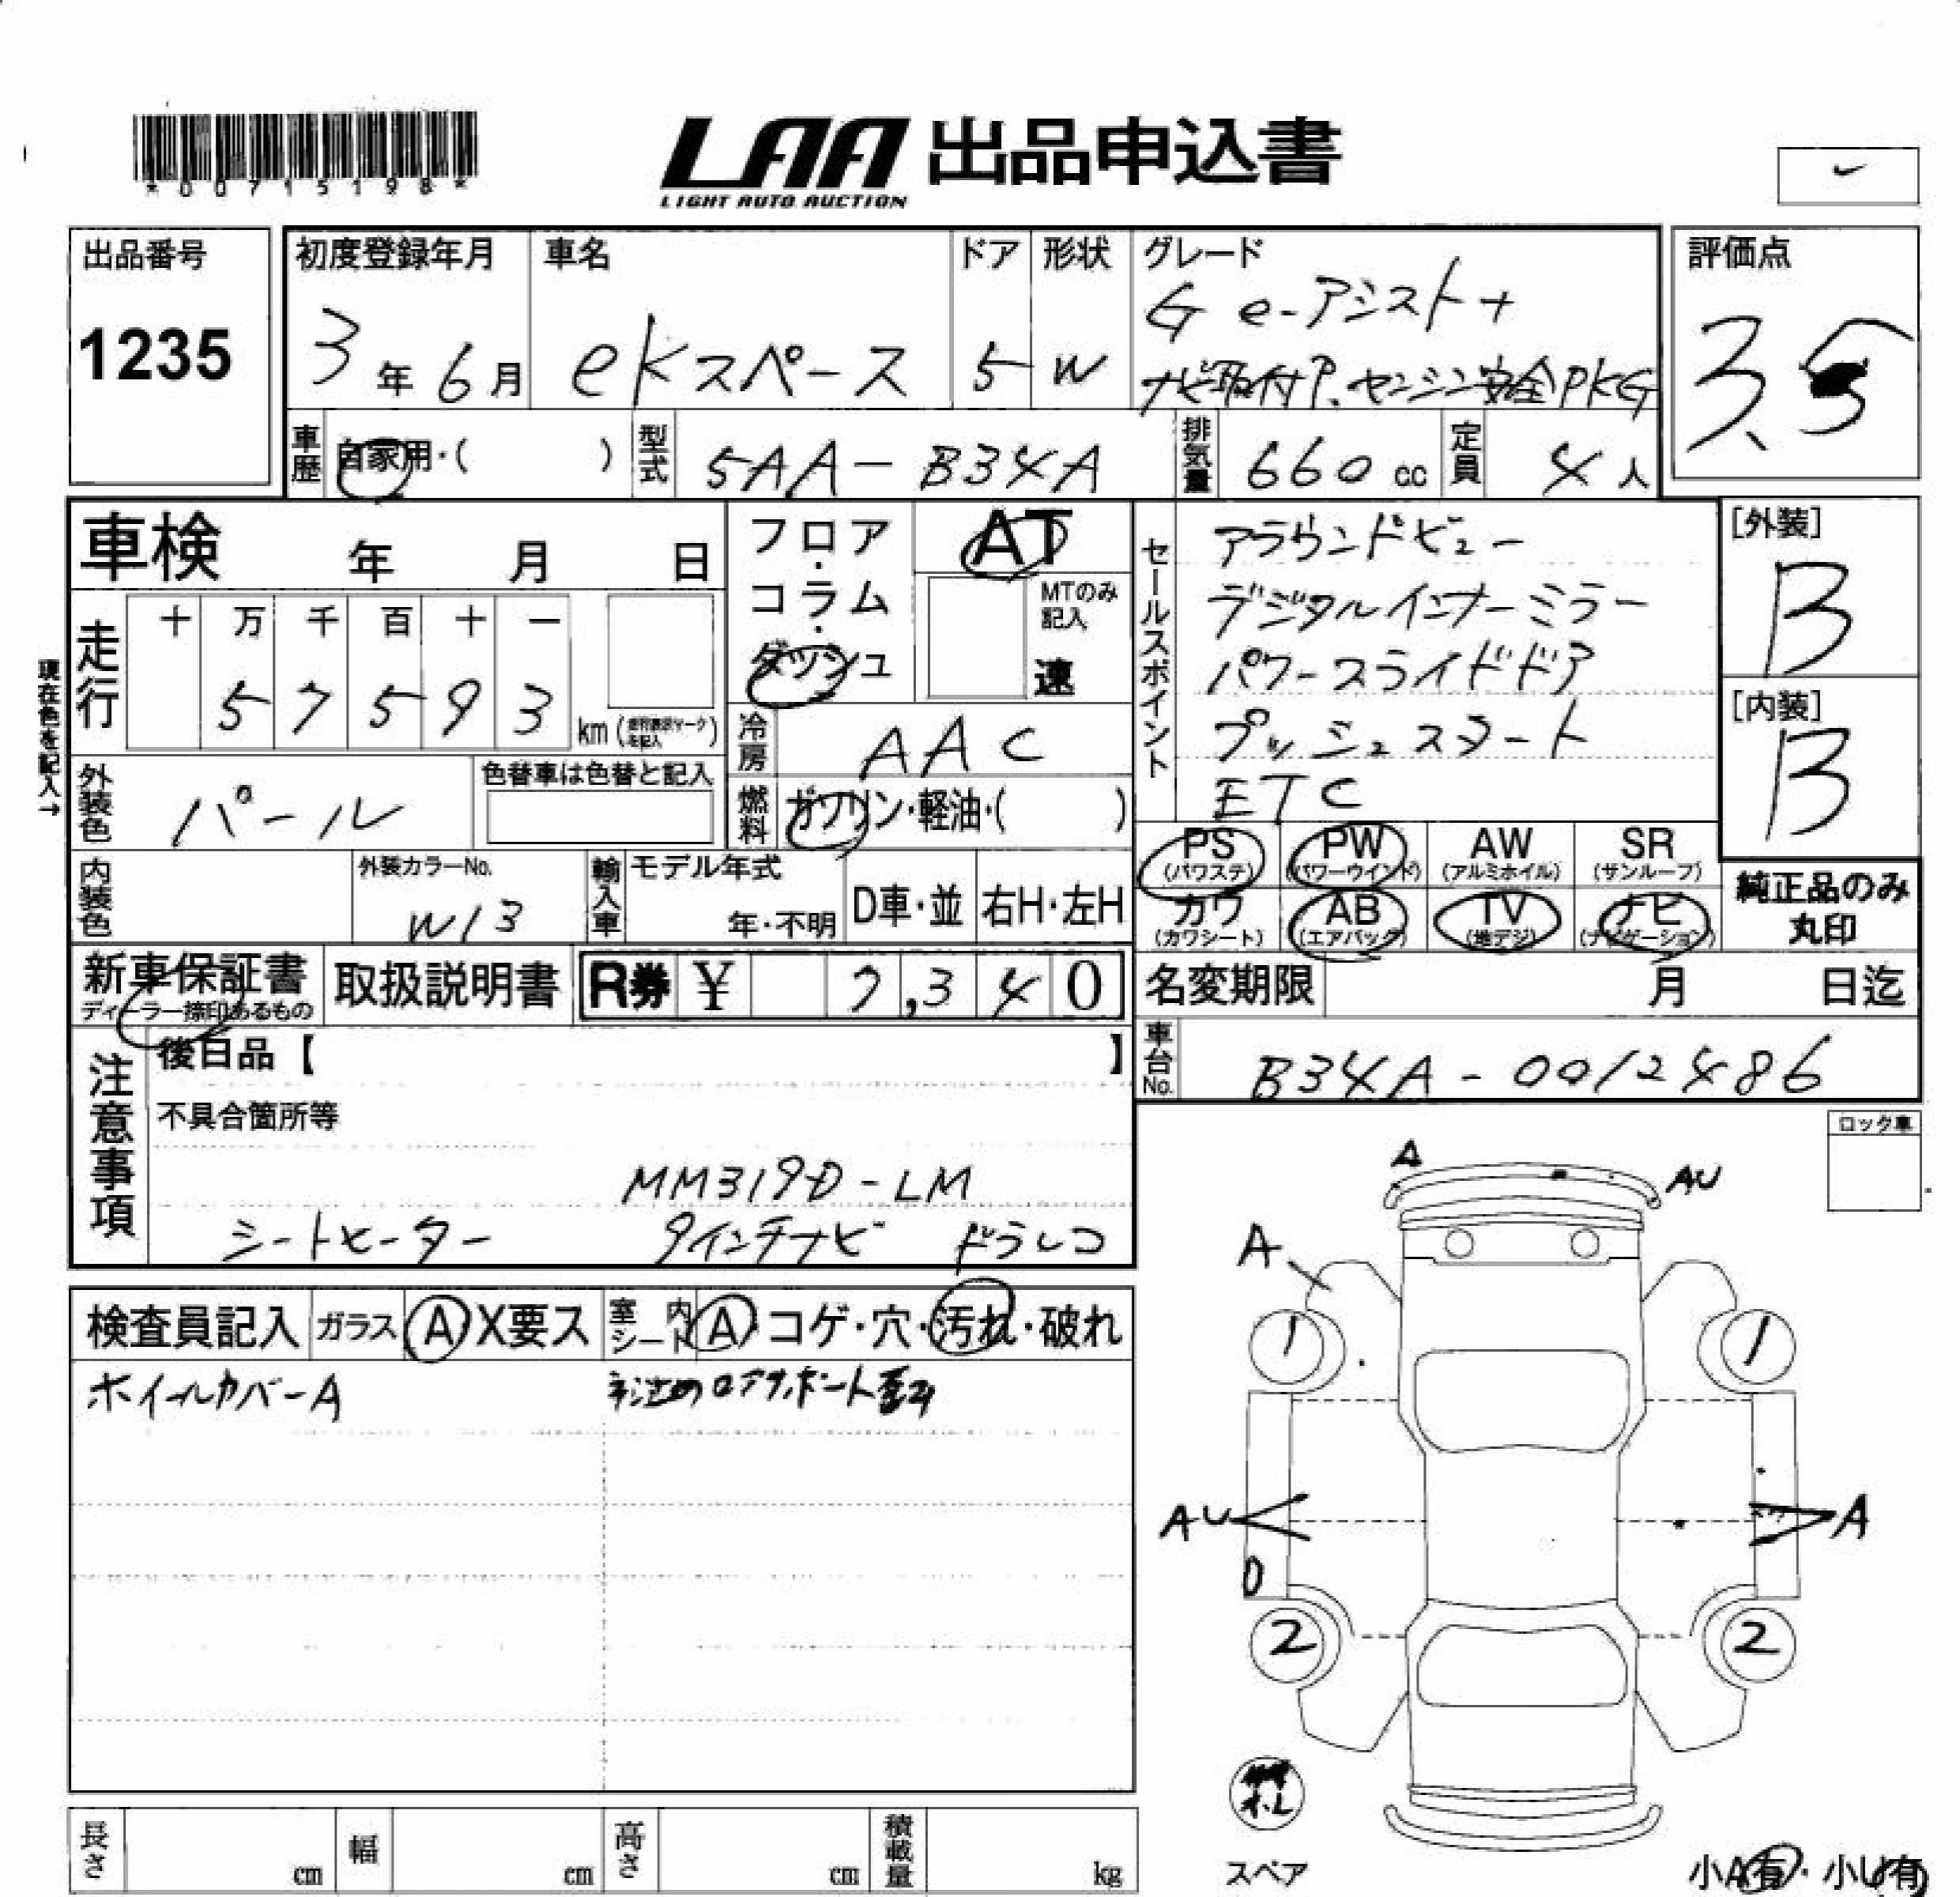 *00715198*
LAA 出品申込書
LIGHT AUTO AUCTION
出品番号
1235
初度登録年月
3年6月
車名
ekスペース
ドア
5
形状
W
グレード
G e-アシスト+
ナビ取付P、センシン安全PKG
評価点
3.5
車歴
自家用・( )
型式
5AA-B34A
排気量
660cc
定員
4人
車検 年 月 日
フロア・コラム・ダッシュ
AT
MTのみ記入
速
セールスポイント
アラウンドビュー
デジタルインナーミラー
パワースライドドア
プッシュスタート
ETC
[外装]
B
[内装]
B
現在色を記入→
走行
十 万 千 百 十 一
5 7 5 9 3
km
冷房
AAC
外装色
パール
色替車は色替と記入
燃料
ガソリン・軽油・( )
PS (パワステ)
PW (パワーウインド)
AW (アルミホイル)
SR (サンルーフ)
カワ (カワシート)
AB (エアバッグ)
TV (地デジ)
ナビ (ナビゲーション)
純正品のみ丸印
内装色
外装カラーNo.
W13
輸入車
モデル年式
年・不明
D車・並
右H・左H
新車保証書
ディーラー捺印あるもの
取扱説明書
R券 ¥ 7,340
名変期限 月 日迄
車台No.
B34A-0012486
注意事項
後日品【 】
不具合箇所等
MM319D-LM
シートヒーター 9インチナビ ドラレコ
ロック車
検査員記入
ガラス A X要ス
室内シート A・コゲ・穴・汚れ・破れ
ホイールカバーA
コアサポート歪み
A
AU
A
1
1
AU
A
2
2
スペア
小A有・小U有
長さ cm
幅 cm
高さ cm
積載量 kg